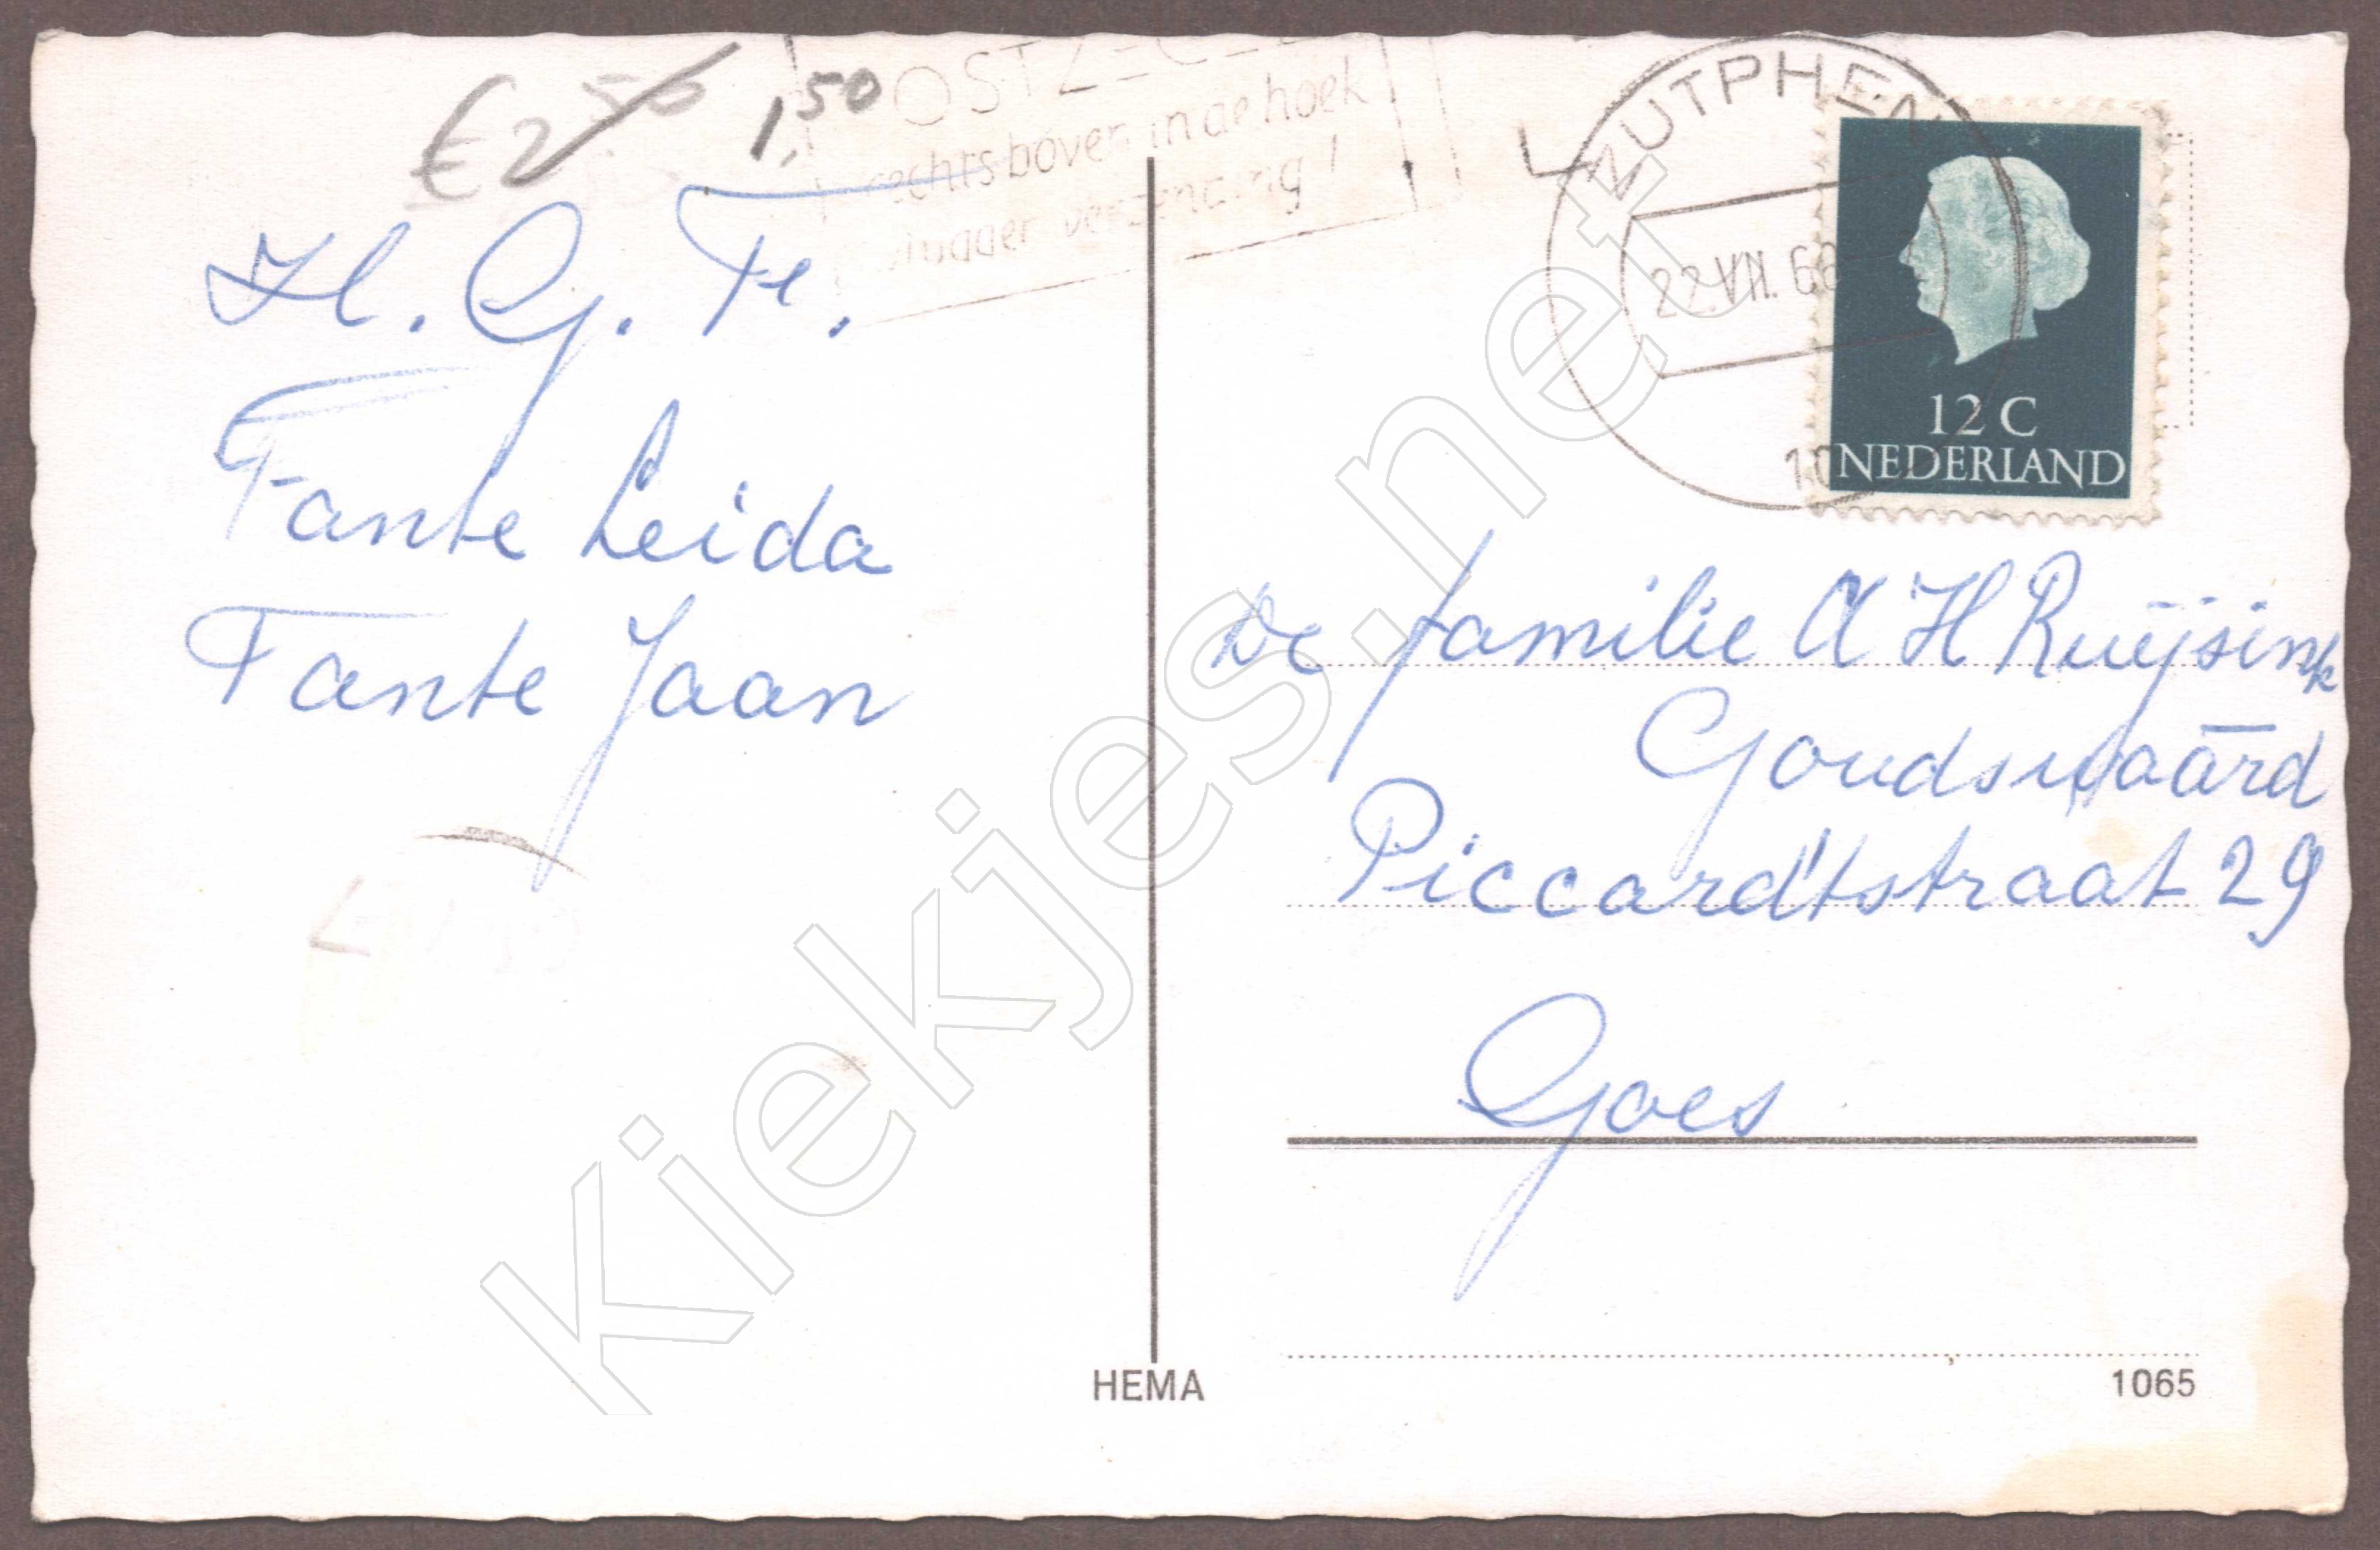 € 2 50 1,50
rechtsboven in de hoek
vlugger verzending!
ZUTPHEN
22.VII.66
10
12 C
NEDERLAND
H. G. Fr.
Tante Leida
Tante Jaan
De familie A H Ruijsink
Goudswaard
Piccardtstraat 29
Goes
HEMA
1065
Kiekjes.net